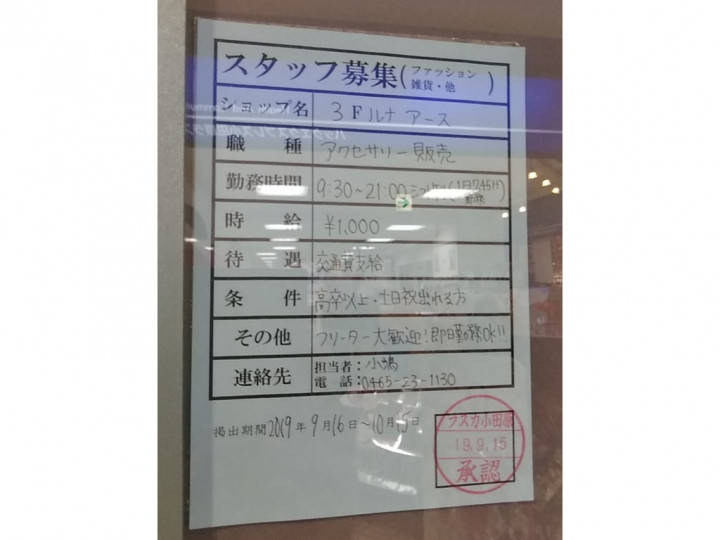 スタッフ募集(ファッション雑貨・他)
ショップ名 3Fルナアース
職種 アクセサリー販売
勤務時間 9:30~21:00
時給 ¥1,000
待遇 交通費支給
条件 高卒以上・土日祝出れる方
その他 フリーター大歓迎!即日勤務OK!!
連絡先 担当者:小嶋
電話:0465-23-1130
掲出期間2019年9月16日~10月15日
ラスカ小田原
19.9.15
承認